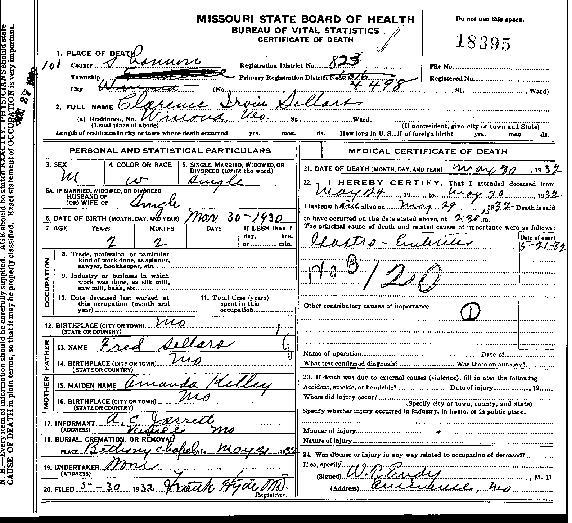 MISSOURI STATE BOARD OF HEALTH
BUREAU OF VITAL STATISTICS
CERTIFICATE OF DEATH
Do not use this space.
18395
1. PLACE OF DEATH
County
Registration District No. 823
File No.
Township
Primary Registration District No.
4498
Registered No.
City
(No. St. Ward)
2. FULL NAME Clarence Irvin Sellars
(a) Residence, No. Winona, Mo. St. Ward.
(Usual place of abode)
(If nonresident, give city or town and State)
Length of residence in city or town where death occurred yrs. mos. ds. How long in U. S., if of foreign birth? yrs. mos. ds.
PERSONAL AND STATISTICAL PARTICULARS
3. SEX
M
4. COLOR OR RACE
W
5. SINGLE, MARRIED, WIDOWED, OR DIVORCED (write the word)
Single
5A. IF MARRIED, WIDOWED, OR DIVORCED
HUSBAND OF
(OR) WIFE OF
Single
6. DATE OF BIRTH (MONTH, DAY, AND YEAR) Mar 30-1930
7. AGE YEARS MONTHS DAYS If LESS than 1 day, hrs. or min.
2 2
OCCUPATION
8. Trade, profession, or particular kind of work done, as spinner, sawyer, bookkeeper, etc.
9. Industry or business in which work was done, as silk mill, saw mill, bank, etc.
10. Date deceased last worked at this occupation (month and year)
11. Total time (years) spent in this occupation
12. BIRTHPLACE (CITY OR TOWN) Mo
(STATE OR COUNTRY)
FATHER
13. NAME Fred Sellars
14. BIRTHPLACE (CITY OR TOWN) Mo
(STATE OR COUNTRY)
MOTHER
15. MAIDEN NAME Amanda Kelley
16. BIRTHPLACE (CITY OR TOWN) Mo
(STATE OR COUNTRY)
17. INFORMANT A. C. Garrett
(ADDRESS) Mo
18. BURIAL, CREMATION, OR REMOVAL
PLACE Bethany Chapel DATE May 31 1932
19. UNDERTAKER None
(ADDRESS)
20. FILED 5-30 1932 Frank Hyde MD
Registrar.
MEDICAL CERTIFICATE OF DEATH
21. DATE OF DEATH (MONTH, DAY, AND YEAR) May 30 1932
22. I HEREBY CERTIFY, That I attended deceased from
May 24, to May 30 1932
I last saw him alive on May 29 1932 Death is said
to have occurred on the date stated above, at 2:30 m.
The principal cause of death and related causes of importance were as follows:
Date of onset
Gastro-Enteritis 5-21-32
120
Other contributory causes of importance:
1
Name of operation Date of
What test confirmed diagnosis? Was there an autopsy?
23. If death was due to external causes (violence), fill in also the following:
Accident, suicide, or homicide? Date of injury 19
Where did injury occur?
(Specify city or town, county, and State)
Specify whether injury occurred in industry, in home, or in public place.
Manner of injury
Nature of injury
24. Was disease or injury in any way related to occupation of deceased?
If so, specify
(Signed) M. D.
(Address) Mo